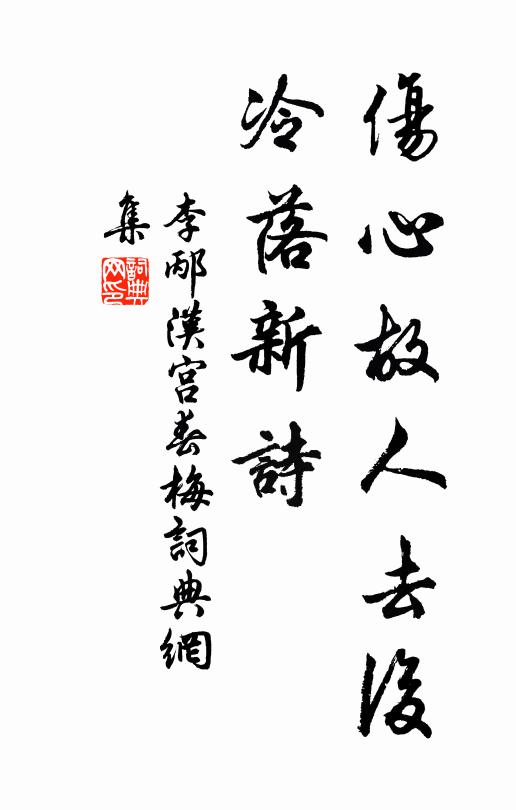 傷心故人去後
冷落新詩
李邴漢宮春梅詞典網
集
詞典
网印